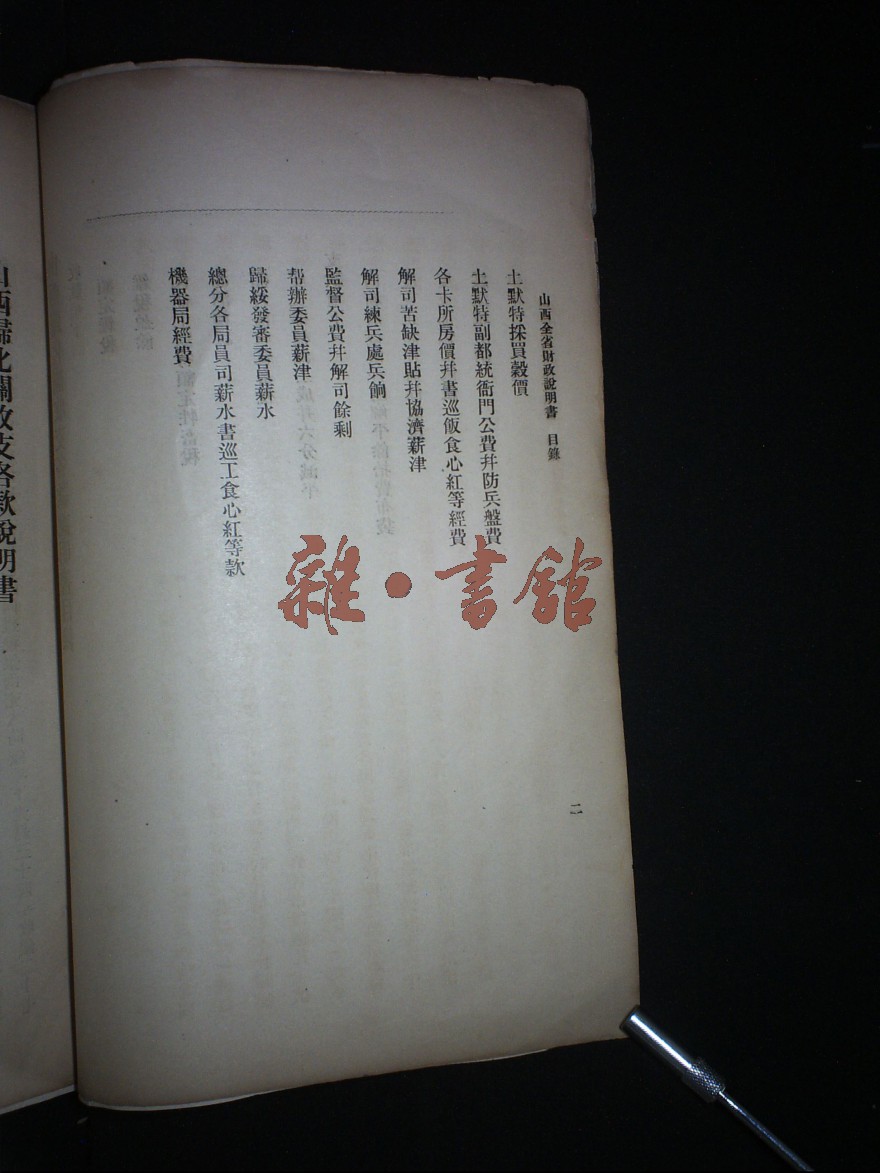 山西全省財政說明書 目錄
二
土默特採買穀價
土默特副都統衙門公費幷防兵盤費
各卡所房價幷書巡飯食心紅等經費
解司苦缺津貼幷協濟薪津
解司練兵處兵餉
監督公費幷解司餘剩
帮辦委員薪津
歸綏發審委員薪水
總分各局員司薪水書巡工食心紅等款
機器局經費
山西歸化關收支各款說明書
雜·書館